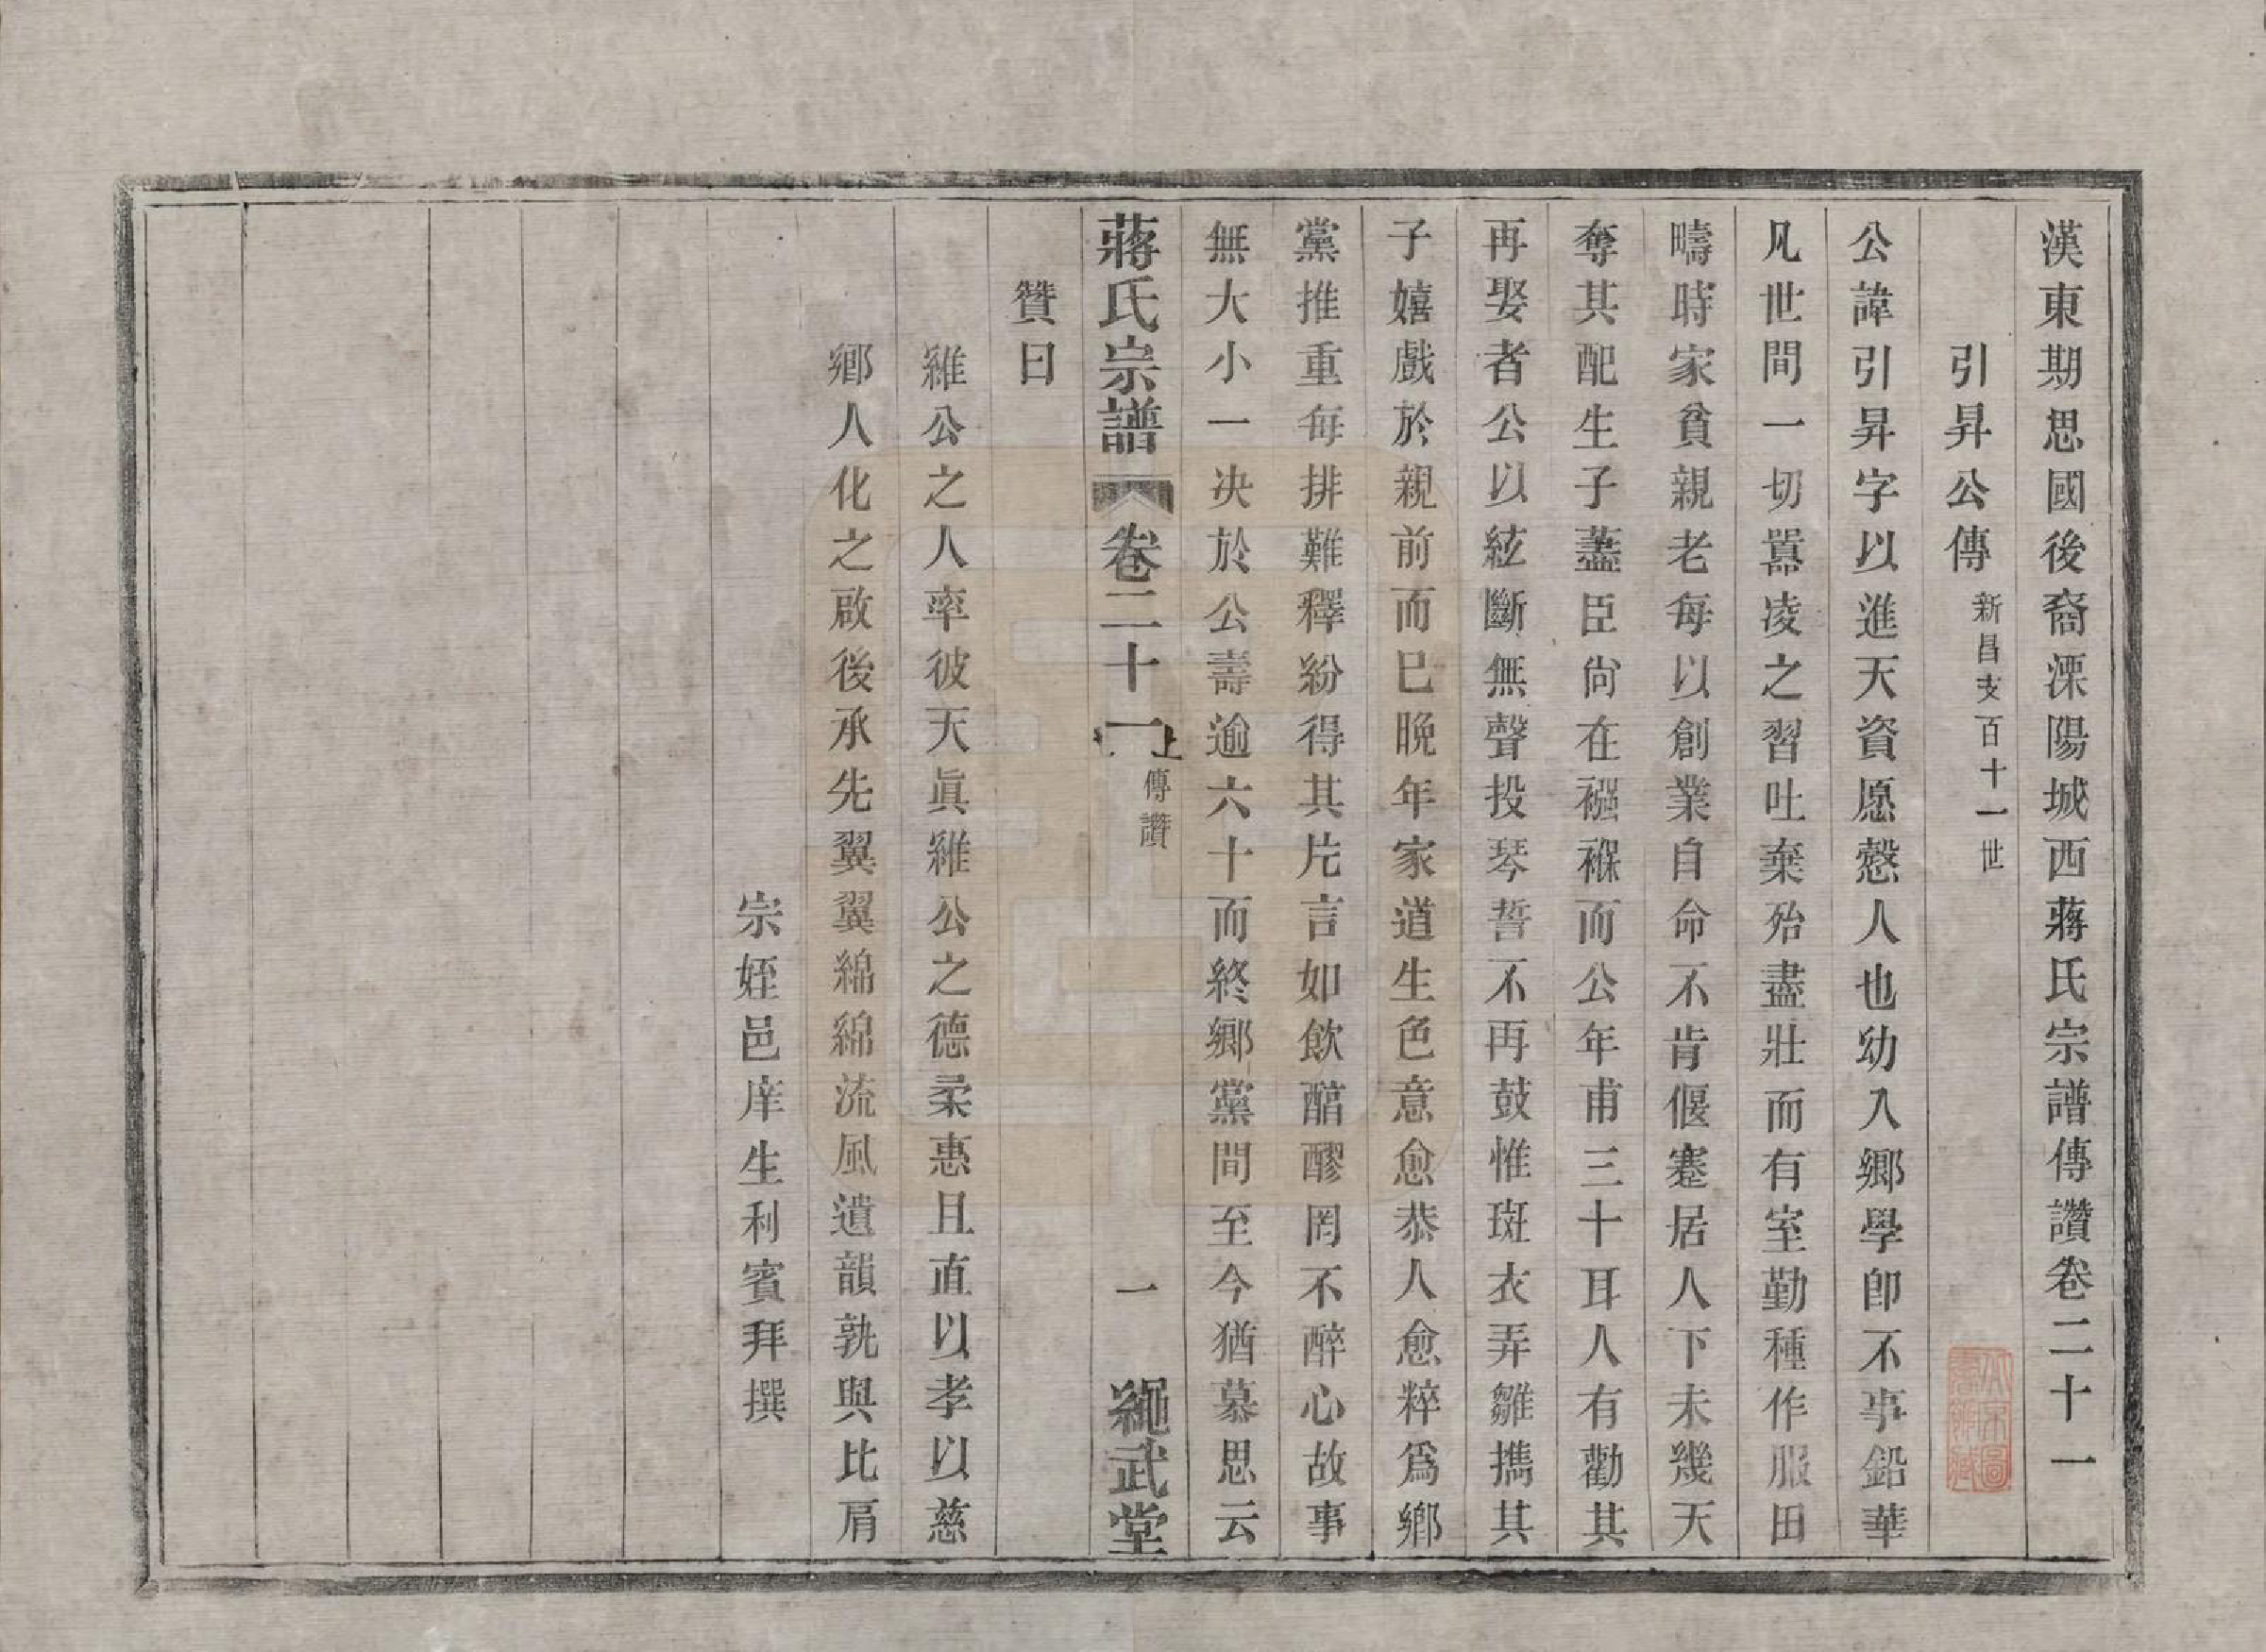 漢東期思國後裔溧陽城西蔣氏宗譜傳讚卷二十一
引昇公傳 新昌支百十一世
公諱引昇字以進天資愿慤人也幼入鄉學卽不事鉛華
凡世間一切囂凌之習吐棄殆盡壯而有室勤種作服田
疇時家貧親老每以創業自命不肯偃蹇居人下未幾天
奪其配生子藎臣尙在襁褓而公年甫三十耳人有勸其
再娶者公以絃斷無聲投琴誓不再鼓惟斑衣弄雛擕其
子嬉戲於親前而已晚年家道生色意愈恭人愈粹爲鄉
黨推重每排難釋紛得其片言如飲醕醪罔不醉心故事
無大小一决於公壽逾六十而終鄉黨間至今猶慕思云
蔣氏宗譜 卷二十一上 傳讚 一 繩武堂
贊曰
維公之人率彼天眞維公之德柔惠且直以孝以慈
鄉人化之啟後承先翼翼綿綿流風遺韻孰與比肩
宗姪邑庠生利賓拜撰